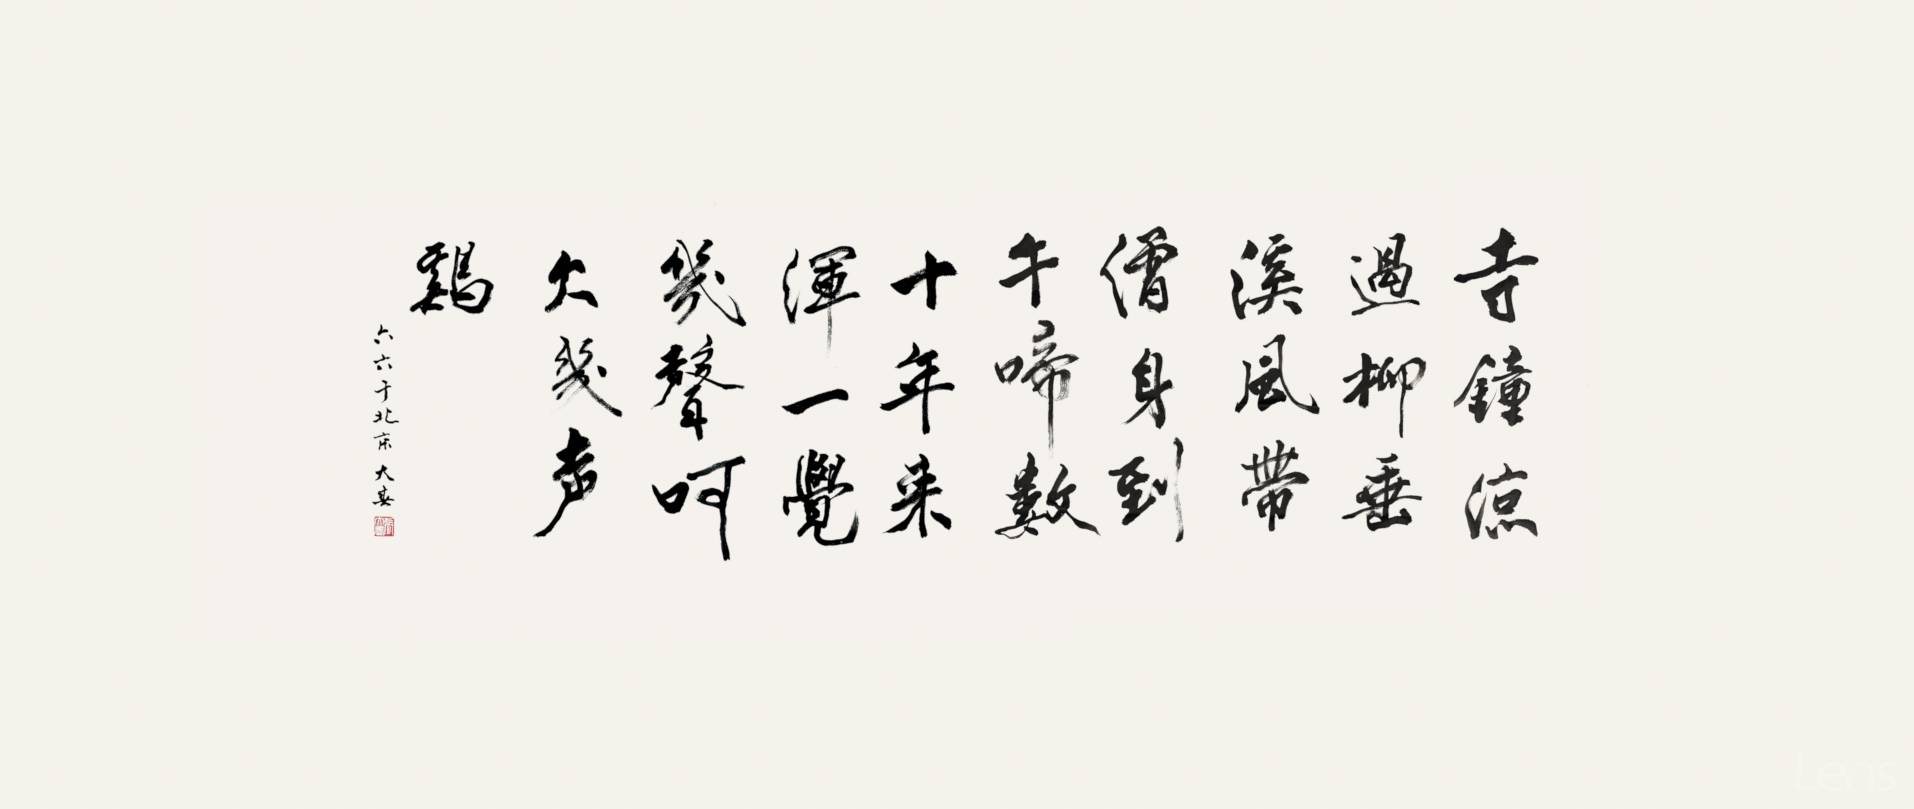 寺鐘涼
過柳垂
溪風帶
僧身到
午啼數
十年来
渾一覺
幾聲呵
欠幾声
鷄
六六于北京 大春
Lens